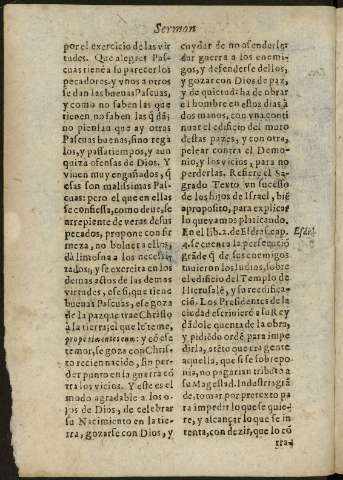 Sermon
por el exercicio de las vir
tudes. Que alegres Pas-
cuas tiene a su parecer los
pecadores, y vnos a otros
se dan las buenas Pascuas,
y como no saben las que
tienen, no saben las q̃ dã;
no piensan que ay otras
Pascuas buenas, sino rega
los, y passatiempos, y aun
quiza ofensas de Dios. Y
viuen muy engañados, q̃
esas son malissimas Pas-
cuas: pero el que en ellas
se confiessa, como deue, se
arrepiente de veras de sus
pecados, propone con fir
meza, no boluer a ellos,
dà limosna a los necessi-
tados, y se exercita en los
demas actos de las demas
virtudes, esse si, que tiene
buenas Pascuas, esse goza
de la paz que trae Christo
à la tierra, el que le teme,
propter timentes eum: y cõ esse
temor, se goza con Chris-
to recien nacido, sin per-
der punto en la guerra cõ
tra los vicios. Y este es el
modo agradable a los o-
jos de Dios, de celebrar
su Nacimiento en la tie-
rra, gozarse con Dios, y
cuydar de no ofenderle:
dar guerra a los enemi-
gos, y defenderse dellos,
y gozar con Dios de paz,
y de quietud: ha de obrar
el hombre en estos dias, à
dos manos, con vna conti
nuar el edificio del muro
destas pazes, y con otra,
pelear contra el Demo-
nio, y los vicios, para no
perderlas. Refiere el Sa-
grado Texto vn sucesso
de los hijos de Israel, bien
a proposito, para explicar
lo que vamos platicando.
En el lib. 2. de Esdras, cap.
4. se cuenta la persecuciõ
grãde q̃ de sus enemigos
tuuieron los Iudios, sobre
el edificio del Templo de
Hierusalẽ, y su reedifica-
ciõ. Los Presidentes de la
ciudad escriuierõ a su Rey
dãdole quenta de la obra,
y pidiẽdo ordẽ para impe
dirla, atẽto que era gente
aquella, que si se sobrepo-
nia, no pagarian tributo a
su Magestad. Industria grã
de, tomar por pretexto pa
ra impedir lo que se quie-
re, y alcançar lo que se in
tenta, con dezir, que lo cõ
tra-
Esdr.